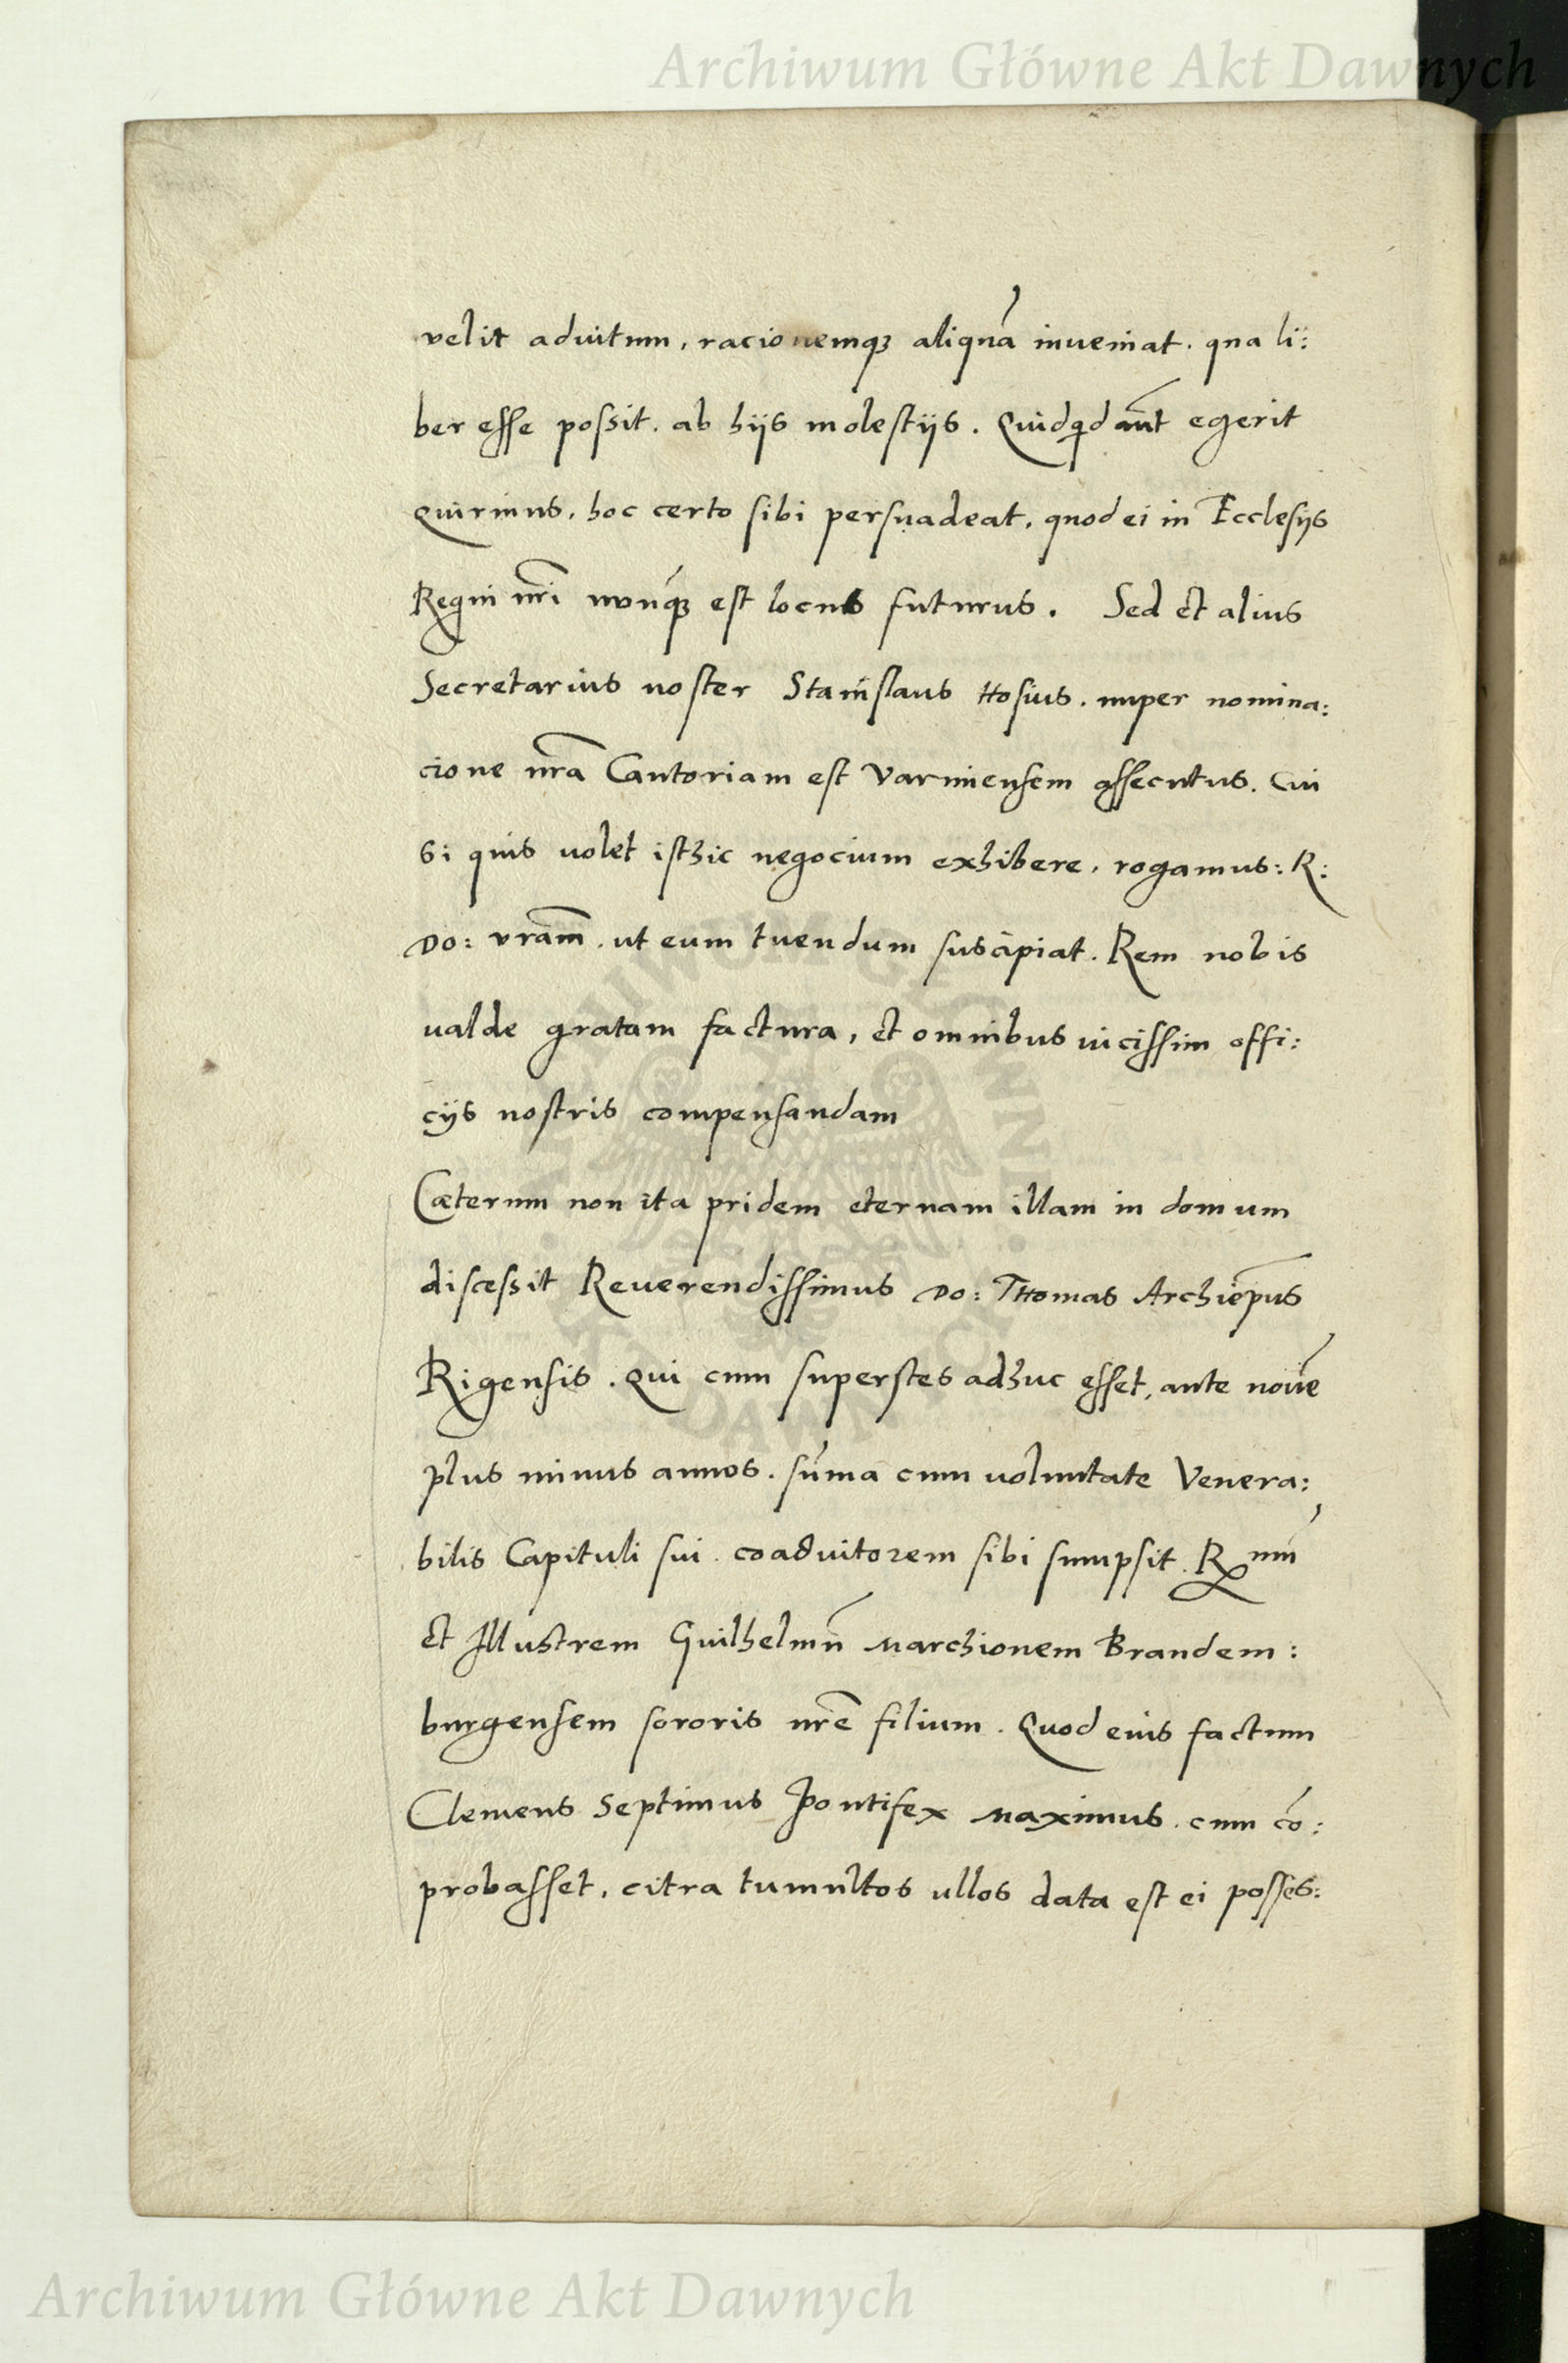 Archiwum Główne Akt Dawnych
velit adiutum, racionemqꝫ aliquā inueniat. qua li:
ber esse possit. ab hijs molestijs. Quidqͥd aūt egerit
Quirinus, hoc certo sibi persuadeat, quod ei in Ecclesijs
Regni nr̃i nunq̃ꝫ est locus futurus. Sed et alius
Secretarius noster Stanislaus Hosius. nuper nomina:
cione nr̃a Cantoriam est Varmiensem assecutus. Cui
si quis uolet isthic negocium exhibere, rogamus: R:
Do: vr̃am, ut eum tuendum suscipiat. Rem nobis
ualde gratam factura, et omnibus uicissim offi:
cijs nostris compensandam
Cæterum non ita pridem eternam illam in domum
discessit Reuerendissimus Do: Thomas Archiep̃us
Rigensis. Qui cum superstes adhuc esset, ante nouē
plus minus annos. sum̃a cum uoluntate Venera:
bilis Capituli sui coadiutorem sibi sumpsit. R̃mum
et Illustrem Guilhelmū Marchionem Brandem:
burgensem sororis nr̃e filium. Quod eius factum
Clemens Septimus Pontifex Maximus. cum cō:
probasset, citra tumultos ullos data est ei posses:
Archiwum Główne Akt Dawnych